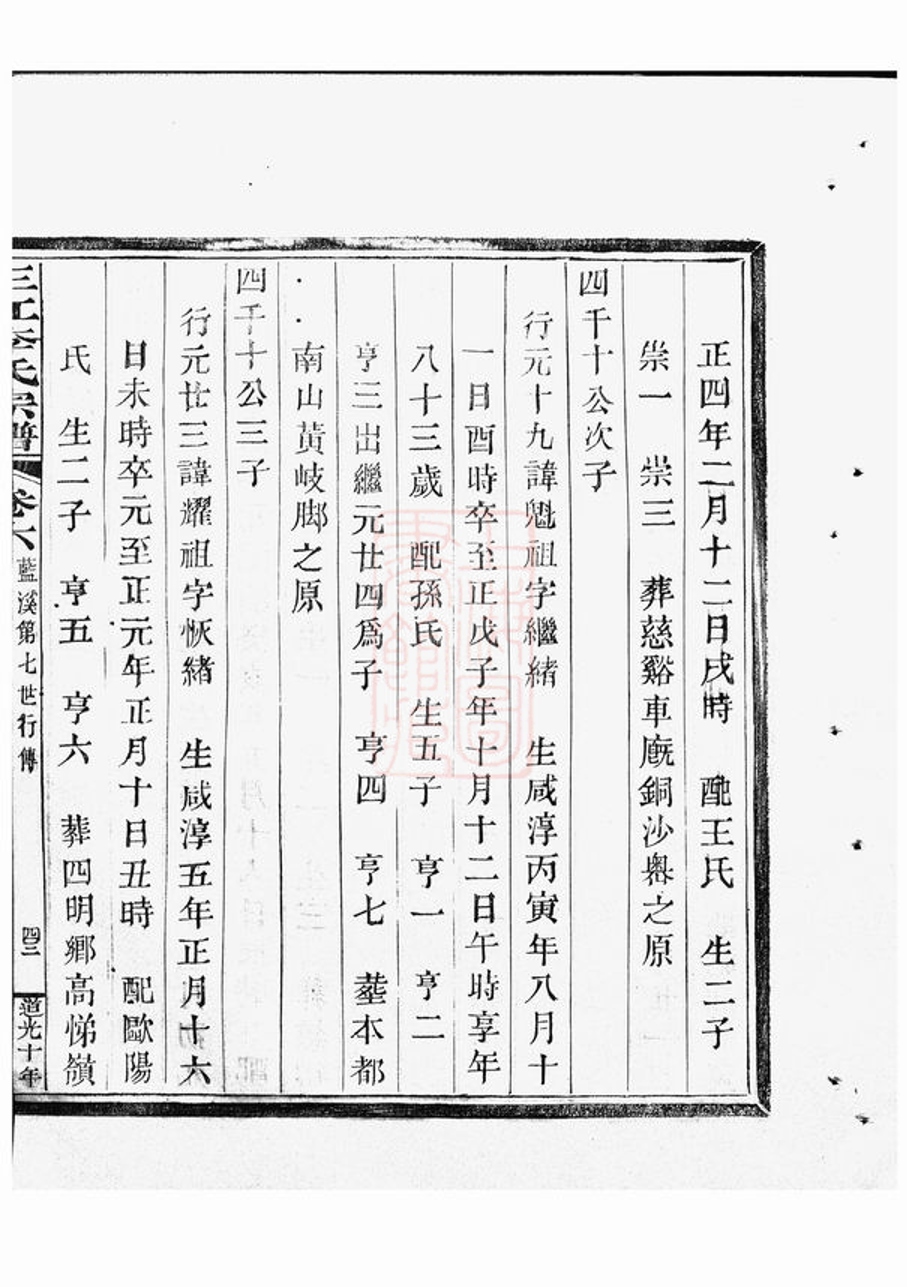 正四年二月十二日戌時　配王氏　生二子
崇一　崇三　葬慈谿車廐銅沙嶴之原
四千十公次子
行元十九諱魁祖字繼緒　生咸淳丙寅年八月十
一日酉時卒至正戊子年十月十二日午時享年
八十三歲　配孫氏　生五子　亨一　亨二
亨三出繼元廿四爲子　亨四　亨七　塟本都
南山黃岐脚之原
四千十公三子
行元廿三諱耀祖字恢緒　生咸淳五年正月十六
日未時卒元至正元年正月十日丑時　配歐陽
氏　生二子　亨五　亨六　葬四明鄉高悌嶺
三江李氏宗譜　卷六　藍溪第七世行傳　四三　道光十年